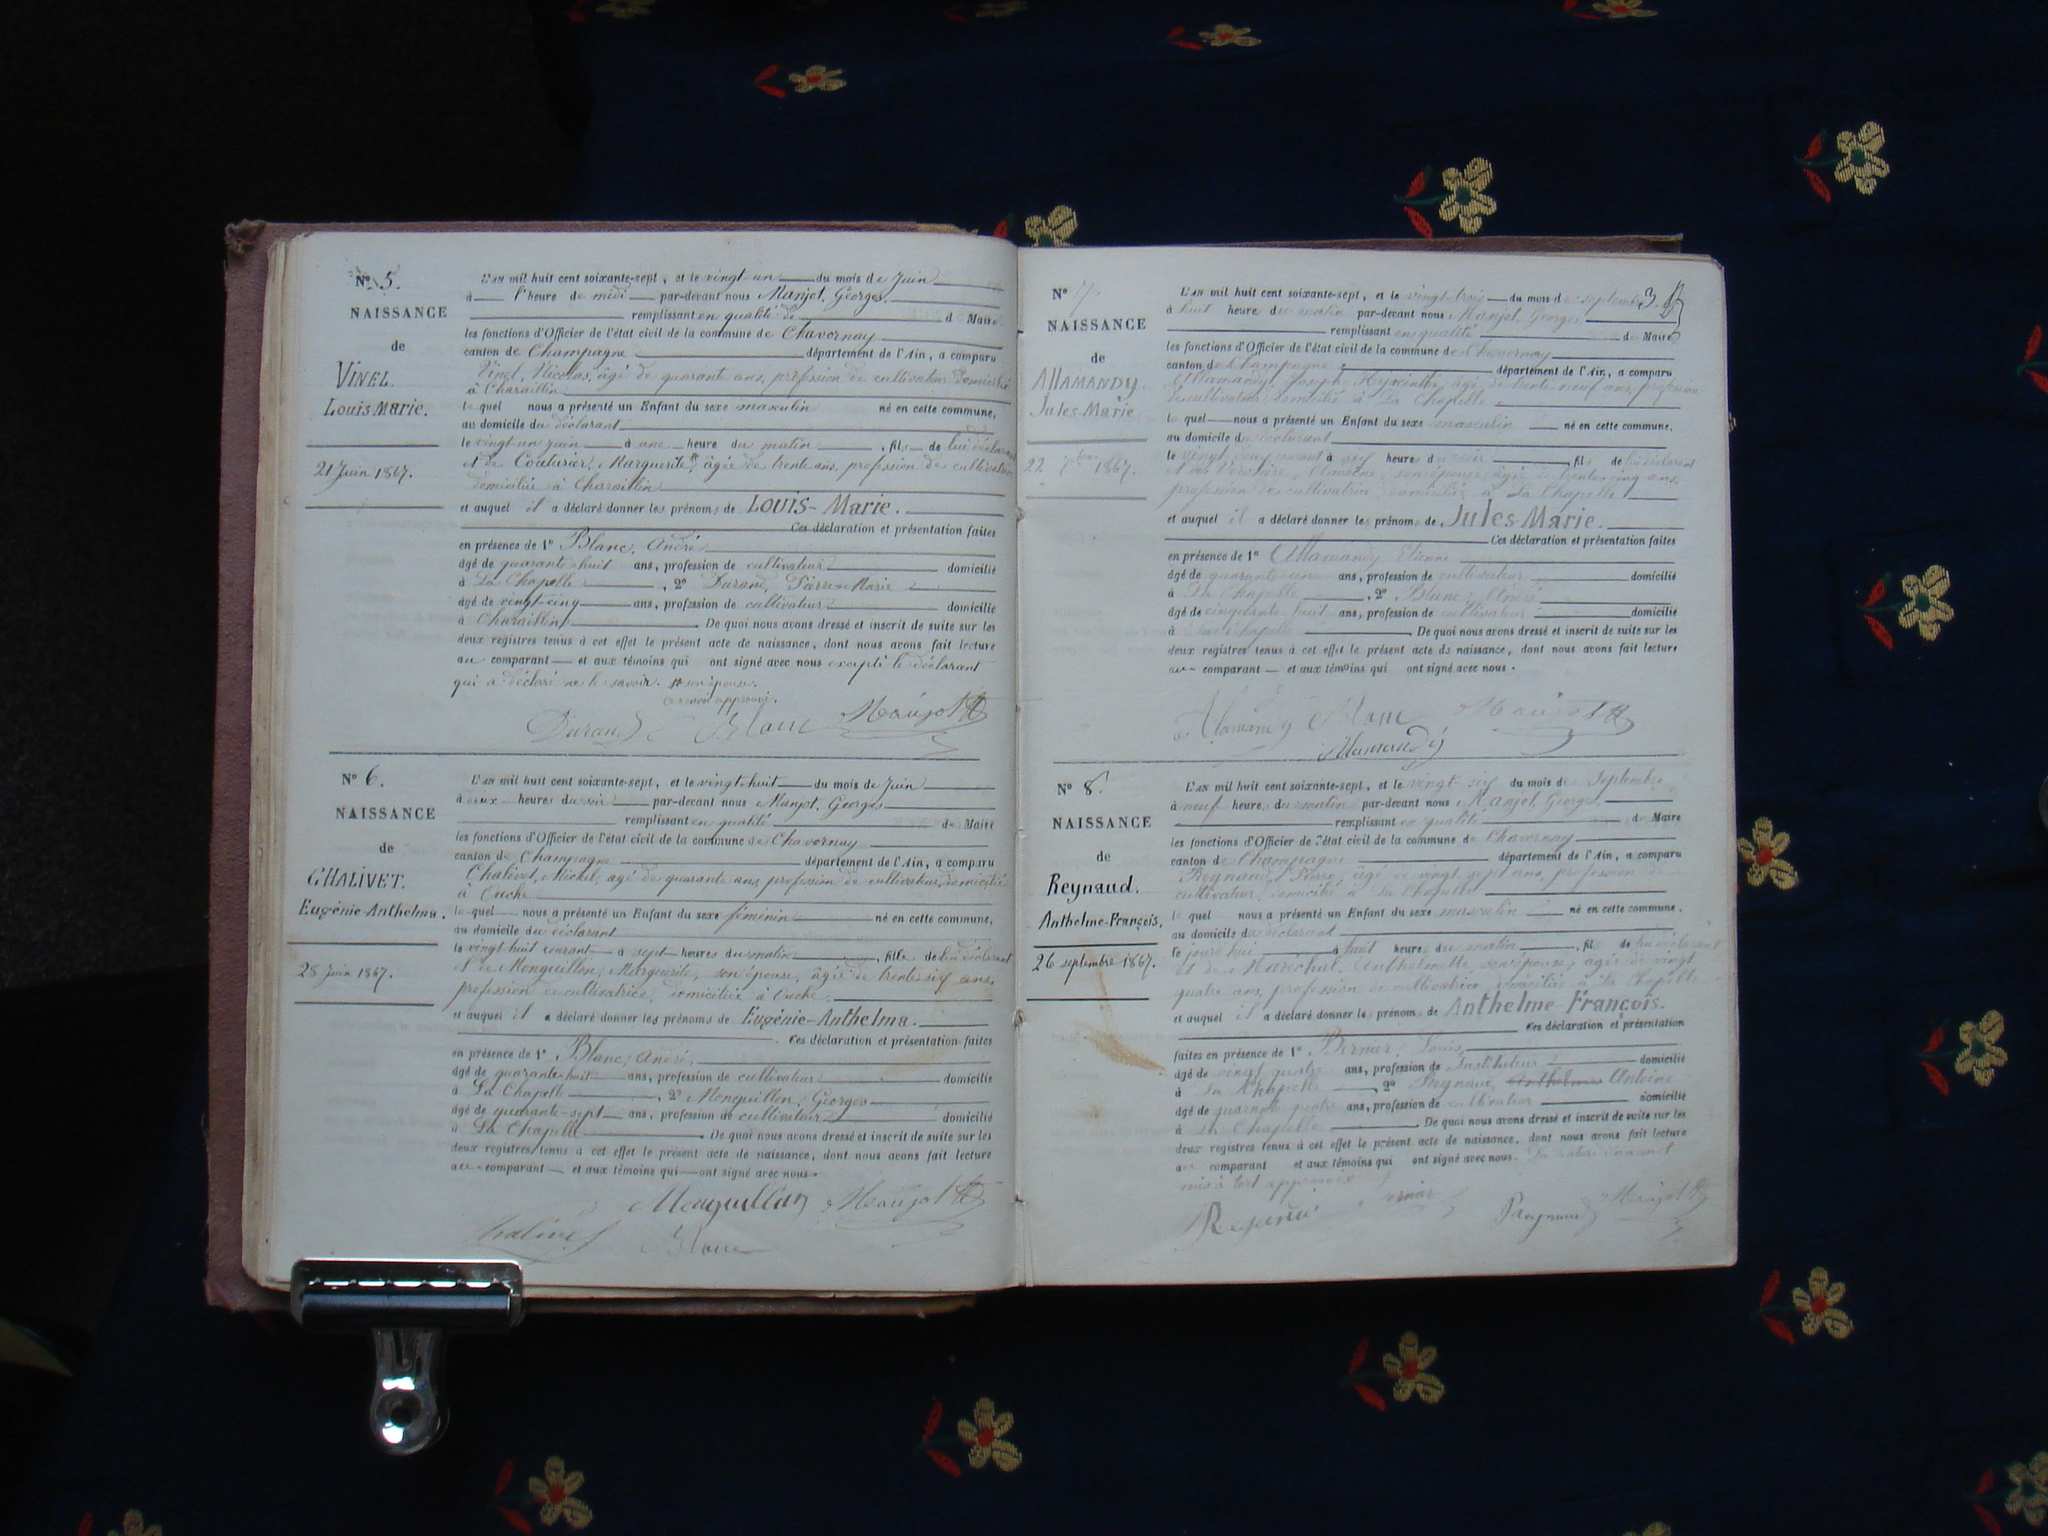 N° 5.
NAISSANCE
de
VINEL.
Louis Marie.
21 Juin 1867.
L'AN mil huit cent soixante-sept, et le vingt un du mois de Juin
à l'heure de midi par-devant nous Manjot, Georges
remplissant en qualité de d Maire
les fonctions d'Officier de l'état civil de la commune de Chavornay
canton de Champagne département de l'Ain, a comparu
Vinel, Nicolas, âgé de quarante ans, profession de cultivateur domicilié
à Charaillin
le quel nous a présenté un Enfant du sexe masculin né en cette commune,
au domicile du déclarant
le vingt un juin à une heure du matin, fils de lui déclarant
et de Couturier, Marguerite, * âgée de trente ans, profession de cultivatrice
domiciliée à Charaillin
et auquel il a déclaré donner les prénoms de LOUIS-Marie.
Ces déclaration et présentation faites
en présence de 1° Blanc, André
âgé de quarante-huit ans, profession de cultivateur domicilié
à La Chapelle, 2° Durand, Pierre-Marie
âgé de vingt-cinq ans, profession de cultivateur domicilié
à Charaillin. De quoi nous avons dressé et inscrit de suite sur les
deux registres tenus à cet effet le présent acte de naissance, dont nous avons fait lecture
au comparant et aux témoins qui ont signé avec nous excepté le déclarant
qui a déclaré ne le savoir. * son épouse.
renvoi approuvé.
Durand Blanc Manjot
N° 6.
NAISSANCE
de
CHALIVET.
Eugénie-Anthelma.
28 Juin 1867.
L'AN mil huit cent soixante-sept, et le vingt-huit du mois de Juin
à deux heures du soir par-devant nous Manjot, Georges
remplissant en qualité de Maire
les fonctions d'Officier de l'état civil de la commune de Chavornay
canton de Champagne département de l'Ain, a comparu
Chalivet, Michel, âgé de quarante ans, profession de cultivateur, domicilié
à Ouche
le quel nous a présenté un Enfant du sexe féminin né en cette commune,
au domicile du déclarant
le vingt huit courant à sept heures du matin, fille de lui déclarant
et de Monguillon, Marguerite, son épouse, âgée de trente six ans,
profession de cultivatrice, domiciliée à Ouche.
et auquel il a déclaré donner les prénoms de Eugénie-Anthelma.
Ces déclaration et présentation faites
en présence de 1° Blanc, André,
âgé de quarante-huit ans, profession de cultivateur domicilié
à La Chapelle, 2° Monguillon, Georges
âgé de quarante-sept ans, profession de cultivateur domicilié
à La Chapelle. De quoi nous avons dressé et inscrit de suite sur les
deux registres tenus à cet effet le présent acte de naissance, dont nous avons fait lecture
au comparant et aux témoins qui ont signé avec nous.
Manjot
Chalivet Blanc
N° 7.
NAISSANCE
de
ALLAMANDY
Jules-Marie
22 7bre 1867.
L'AN mil huit cent soixante-sept, et le vingt trois du mois de septembre 3
à huit heures du matin par-devant nous Manjot, Georges
remplissant en qualité de Maire
les fonctions d'Officier de l'état civil de la commune de Chavornay
canton de Champagne département de l'Ain, a comparu
Allamandy, Joseph Hyacinthe, âgé de trente neuf ans, profession
de cultivateur domicilié à La Chapelle
le quel nous a présenté un Enfant du sexe masculin né en cette commune,
au domicile du déclarant
le vingt deux courant à six heures du soir, fils de lui déclarant
son épouse, âgée de trente cinq ans,
profession de cultivatrice domiciliée à La Chapelle
et auquel il a déclaré donner les prénoms de Jules-Marie.
Ces déclaration et présentation faites
en présence de 1° Allamandy Etienne
âgé de quarante un ans, profession de cultivateur domicilié
à La Chapelle, 2° Blanc, André
âgé de cinquante huit ans, profession de cultivateur domicilié
à La Chapelle. De quoi nous avons dressé et inscrit de suite sur les
deux registres tenus à cet effet le présent acte de naissance, dont nous avons fait lecture
au comparant et aux témoins qui ont signé avec nous.
Allamandy Blanc Manjot
Allamandy
N° 8.
NAISSANCE
de
Reynaud.
Anthelme-François.
26 septembre 1867.
L'AN mil huit cent soixante-sept, et le vingt six du mois de Septembre
à neuf heures du matin par-devant nous Manjot, Georges
remplissant en qualité de Maire
les fonctions d'Officier de l'état civil de la commune de Chavornay
canton de Champagne département de l'Ain, a comparu
Reynaud, Pierre, âgé de vingt sept ans, profession de
cultivateur, domicilié à La Chapelle
le quel nous a présenté un Enfant du sexe masculin né en cette commune,
au domicile du déclarant
le jourd'hui à huit heures du matin, fils de lui déclarant
et de Maréchal, Anthelmette, son épouse, âgée de vingt
quatre ans, profession de cultivatrice domiciliée à La Chapelle
et auquel il a déclaré donner les prénoms de Anthelme-François.
Ces déclaration et présentation
faites en présence de 1° Bernar, Louis,
âgé de vingt quatre ans, profession de Instituteur domicilié
à La Chapelle, 2° Reynaud, Anthelme Antoine
âgé de quarante quatre ans, profession de cultivateur domicilié
à La Chapelle. De quoi nous avons dressé et inscrit de suite sur les
deux registres tenus à cet effet le présent acte de naissance, dont nous avons fait lecture
au comparant et aux témoins qui ont signé avec nous.
mis à tort approuvé
Reynaud Manjot